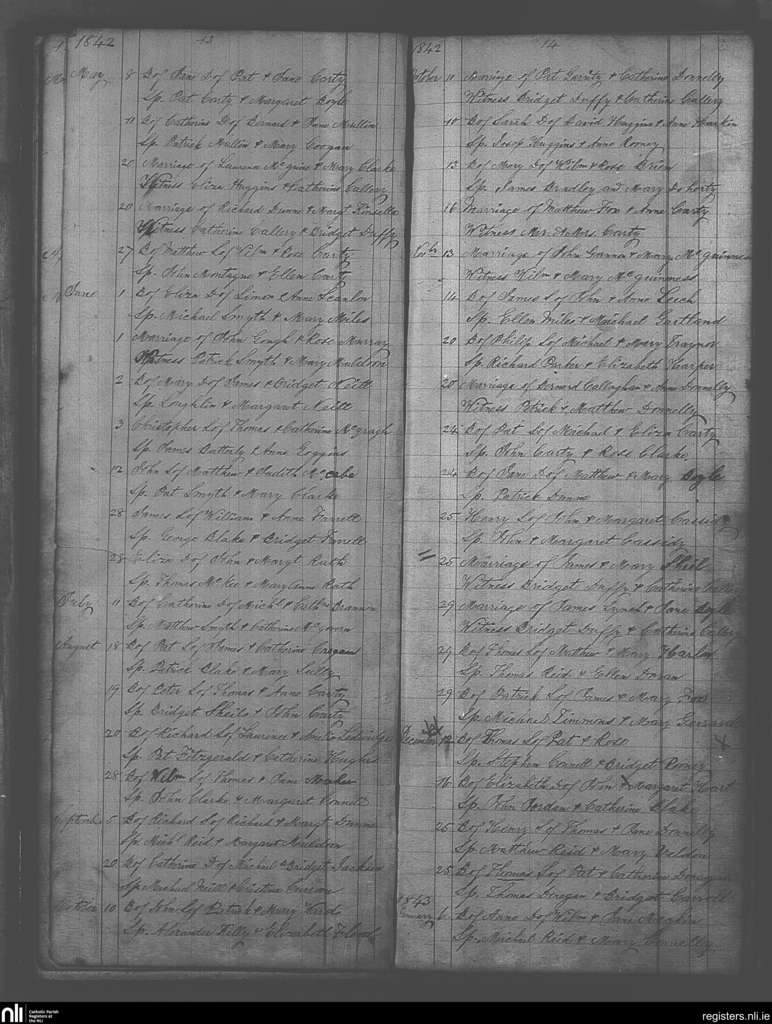 1842 13
May 8 B of Jane D of Pat & Jane Carty
Sp. Pat Carty & Margaret Boyle
11 B of Catherine D of Bernard & Jane Mullin
Sp. Patrick Mullin & Mary Coogan
20 Marriage of Laurence McGuire & Mary Clarke
Witness Eliza Huggins & Catherine Callery
20 Marriage of Richard Dunne & Margt Kinsella
Witness Catherine Callery & Bridget Duffy
27 B of Matthew S of Wilm & Rose Carty
Sp. John Montague & Ellen Carty
June 1 B of Eliza D of Simon & Anne Scanlon
Sp. Michael Smyth & Mary Miles
1 Marriage of John Gough & Rose Murray
Witness Patrick Smyth & Mary Muldoon
2 B of Mary D of James & Bridget Neill
Sp. Loughlin & Margaret Neill
3 Christopher S of Thomas & Catherine McGragh
Sp. James Butterly & Anne Goggins
12 John S of Matthew & Judith McCabe
Sp. Pat Smyth & Mary Clarke
28 James S of William & Anne Farrell
Sp. George Blake & Bridget Farrell
28 Eliza D of John & Margt Rath
Sp. Thomas McKeo & Mary Anne Rath
July 11 B of Catherine D of Michl & Cathne Brannon
Sp. Matthew Smyth & Catherine McGovern
August 18 B of Pat S of Thomas & Catherine
Sp. Patrick Blake & Mary Lully
19 B of Peter S of Thomas & Anne Carty
Sp. Bridget Sheils & John Carty
20 B of Richard S of Laurence &
Sp. Pat Fitzgerald & Catherine Hughes
28 B of Wilm S of Thomas & Jane Meaker
Sp. John Clarke & Margaret Connell
5 B of Richard S of Richard & Margt Dunne
Sp. Michl Reid & Margaret Muldoon
20 B of Catherine D of Michael & Bridget Jackson
Sp. Michael Neill & Cristina Curran
October 10 B of John S of Patrick & Mary
Sp. Alexander Kelly & Elizabeth Flood
1842 14
October 11 Marriage of Pat Geraty & Catherine Donnelly
Witness Bridget Duffy & Catherine Callery
10 B of Sarah D of David Huggins & Anne Harkin
Sp. Josep Huggins & Anne Rooney
13 B of Mary D of Wilm & Rose Brien
Sp. James Bradley and Mary Doherty
16 Marriage of Matthew Fox & Anne Carty
Witness Mr. & Mrs. Carty
13 Marriage of John Gannon & Mary McGuinness
Witness Wilm & Mary McGuinness
14 B of James S of John & Anne Leech
Sp. Ellen Miles & Michael Gartland
20 B of Philip S of Michael & Mary Traynor
Sp. Richard Parker & Elizabeth Harper
20 Marriage of Bernard Callaghan & Anne Donnelly
Witness Patrick & Matthew Donnelly
24 B of Pat S of Michael & Eliza Carty
Sp. John Carty & Ross Clarke
24 B of Jane D of Matthew & Mary Boyle
Sp. Patrick Dunne
25 Henry S of John & Margaret Cassidy
Sp. John & Margaret Cassidy
25 Marriage of James & Mary Sheil
Witness Bridget Duffy & Catherine Callery
29 Marriage of James Lynch & Jane Boyle
Witness Bridget Duffy & Catherine Callery
29 B of Thomas S of Mathew & Mary Harlin
Sp. Thomas Reid & Ellen Doran
29 B of Patrick S of James & Mary Fox
Sp. Michael Timmons & Mary Gerrard
December 12 B of Thomas S of Pat & Ross
Sp. Stephen Carroll & Bridget Rooney
16 B of Elizabeth D of John & Margaret Hart
Sp. John Jordan & Catherine Blake
25 B of Henry S of Thomas & Jane Donnelly
Sp. Matthew Reid & Mary Weldon
25 B of Thomas S of Pat & Catherine Donegan
Sp. Thomas Donegan & Bridget Carroll
1843
January 6 B of Anne D of Wilm & Jane Meakin
Sp. Michael Reid & Mary Connolly
nli Catholic Parish Registers at the NLI
registers.nli.ie